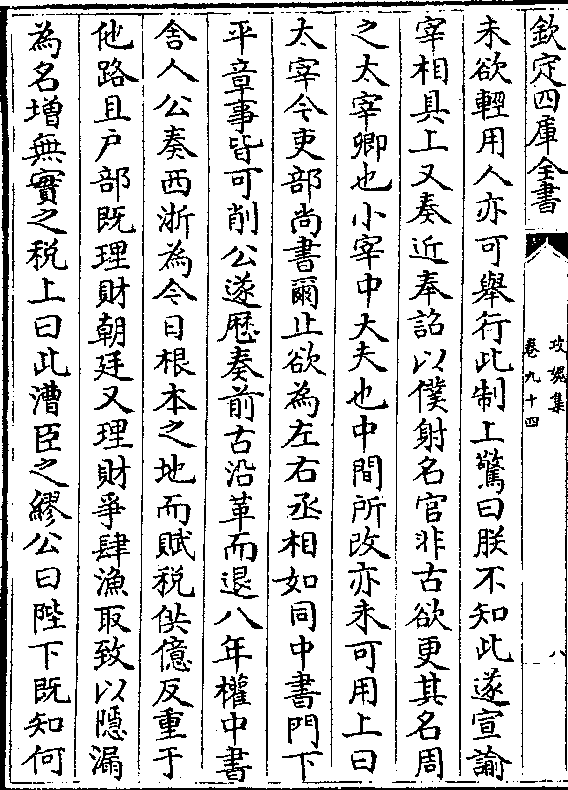 欽定四庫全書
攻媿集
卷九十四
八
未欲輕用人亦可舉行此制上驚曰朕不知此遂宣諭
宰相具上又奏近奉詔以僕射名官非古欲更其名周
之太宰卿也小宰中大夫也中間所改亦未可用上曰
太宰今吏部尚書爾止欲為左右丞相如同中書門下
平章事皆可削公遂歴奏前古沿革而退八年權中書
舎人公奏西浙為今日根本之地而賦税供億反重于
他路且户部既理財朝廷又理財爭肆漁取致以隠漏
為名增無實之税上曰此漕臣之繆公曰陛下既知何